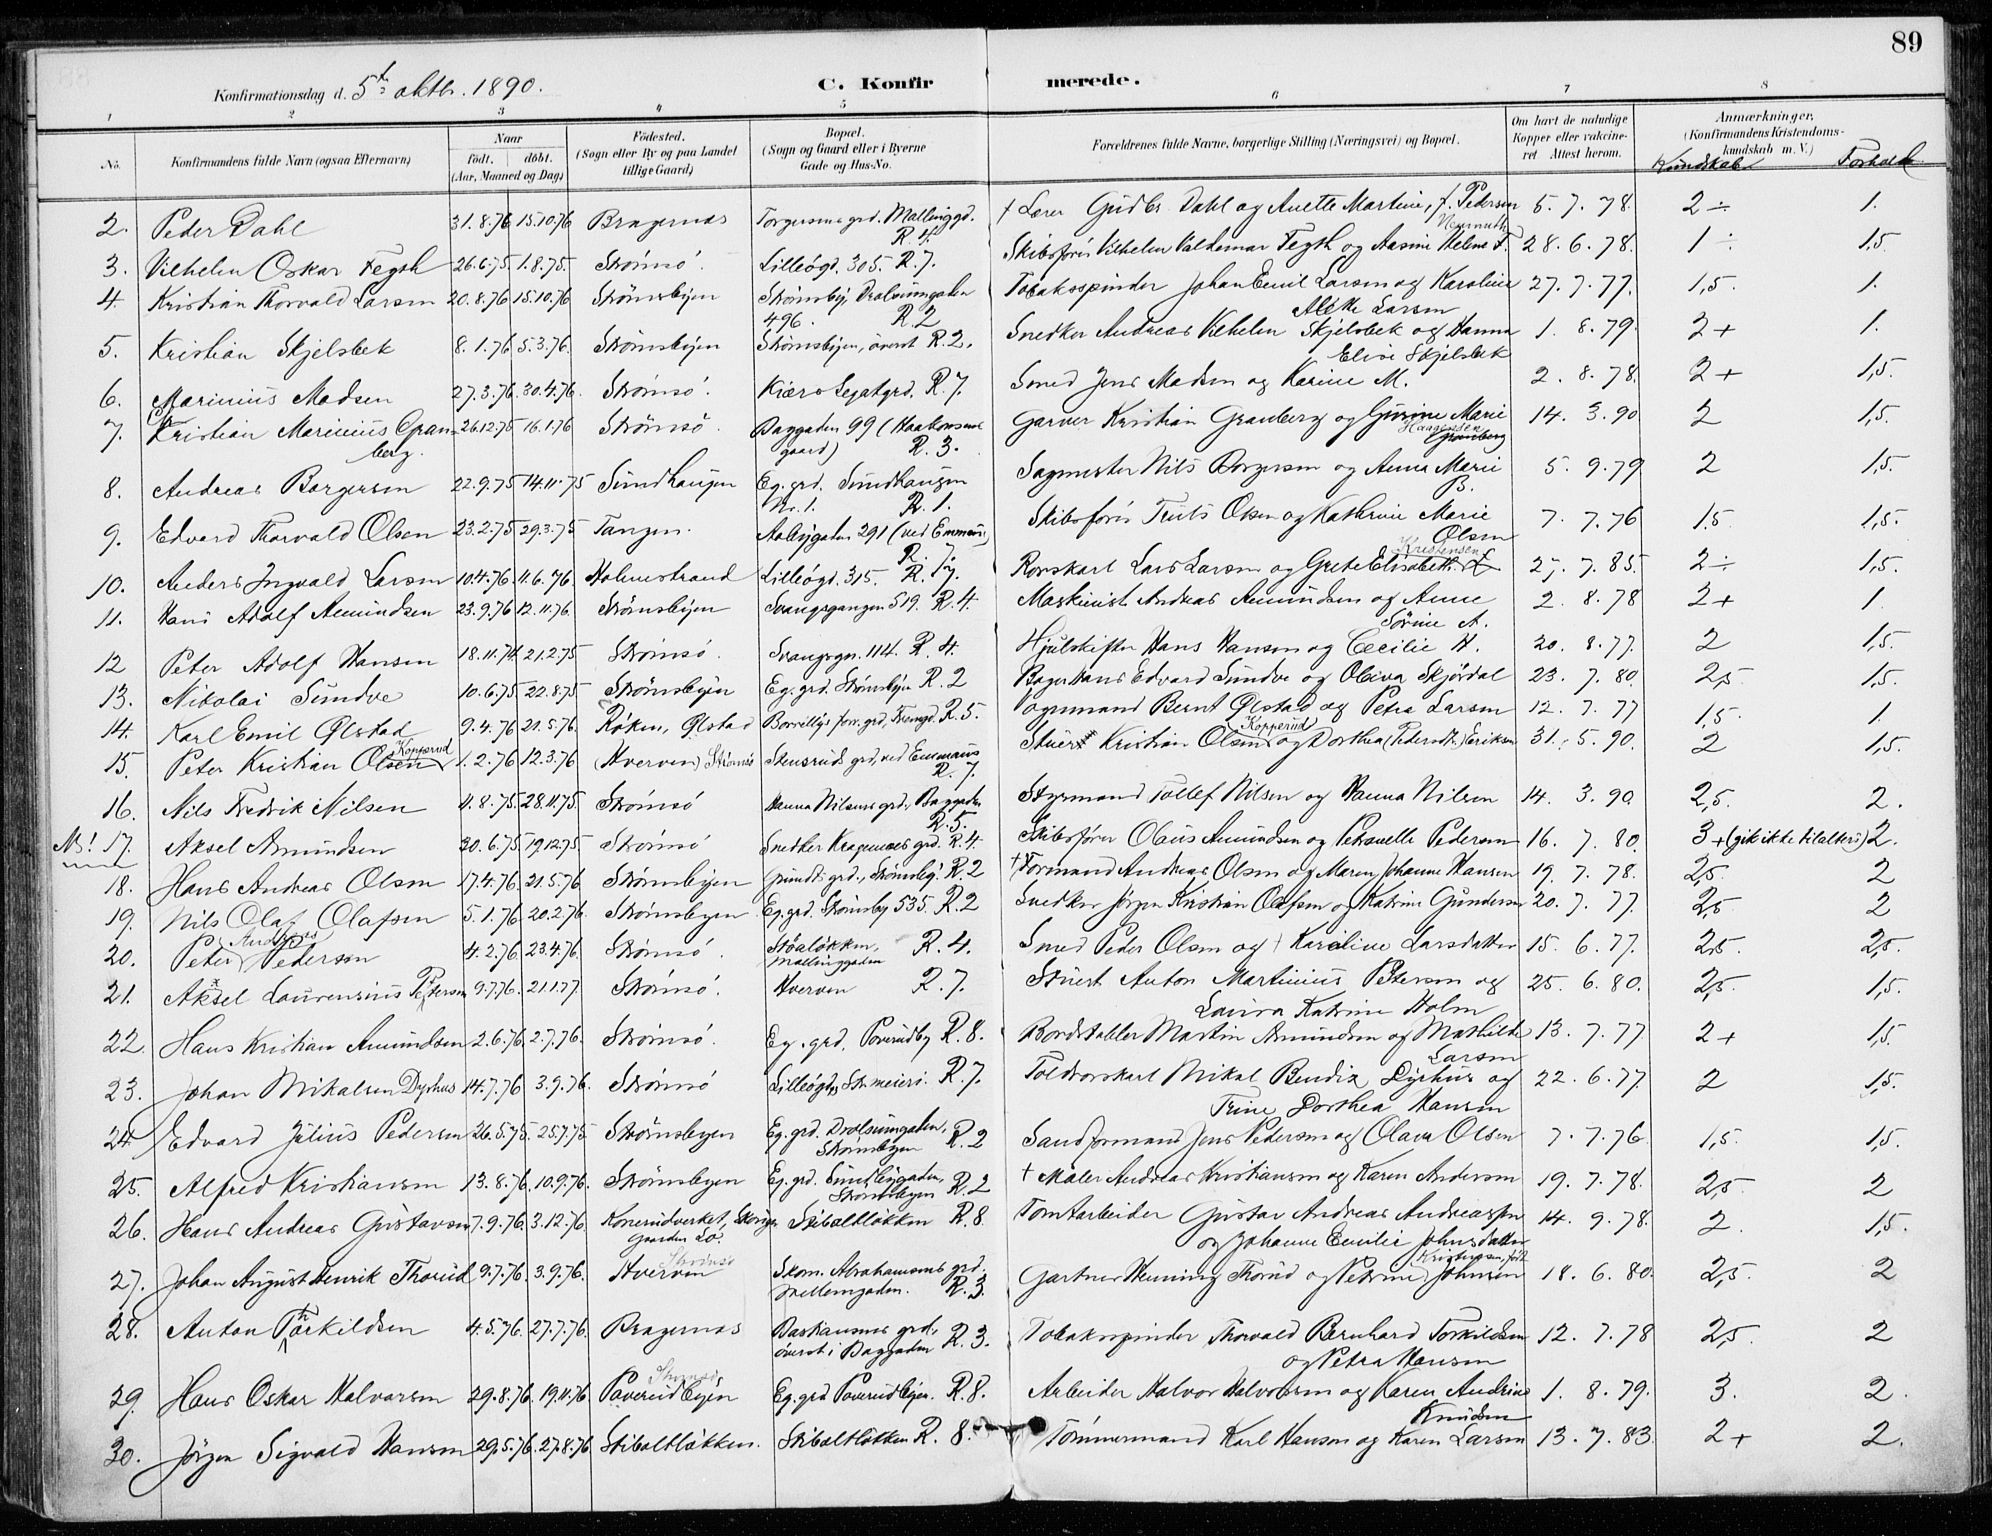 89
Konfirmationsdag d. 5te oktbr. 1890. C. Konfirmerede.
1 2 3 4 5 6 7 8
No. Konfirmandens fulde Navn (ogsaa Efternavn) Naar født. døbt. (Aar, Maaned og Dag) Fødested. (Sogn eller By og paa Landet tillige Gaard) Bopæl. (Sogn og Gaard eller i Byerne Gade og Hus-No. Forældrenes fulde Navne, borgerlige Stilling (Næringsvei) og Bopæl. Om havt de naturlige Kopper eller vakcineret Attest herom. Anmærkninger, (Konfirmandens Kristendomskundskab m. V.) Kundskab Forhold
2. Peder Dahl 31.8.76 15.10.76 Bragernæs Torgersens grd. Mallinggd. R. 4. † Lærer Gudbr. Dahl og Anette Martine, f. Pedersen 5. 7. 78. 2 ÷ 1.
3. Vilhelm Oskar Fegth 26.6.75. 1.8.75. Strömsö. Lilleögd. 305. R. 7. Skibsförer Vilhelm Valdemar Fegth og Aasine Helene F. 28. 6. 78. 1 ÷ 1,5.
4. Kristian Thorvald Larsen 20.8.76 15.10.76 Strömsbyen Strömsby, Dralsumgaden 496. R. 2 Tobaksspinder Johan Emil Larsen og Karoline Alette Larsen 27. 7. 77. 1,5. 1.
5. Kristian Skjelsbek 8.1.76 5.3.76. Strömsbyen Strömsbyen, överst R. 2. Snedker Andreas Vilhelm Skjelsbek og Hanna Elise Skjelsbek 1. 8. 79. 2 + 1.
6. Marinius Madsen 27.3.76 30.4.76. Strömsö. Kiærs Legatgrd. R. 7. Smed Jens Madsen og Karine M. 2. 8. 78. 2 + 1,5.
7. Kristian Marinius Granberg. 26.12.75 16.1.76 Strömsö. Baggaden 99 (Haakonsens gaard) R. 3. Garver Kristian Granberg og Gurine Marie Haagensen Granberg 14. 3. 90 2 1,5.
8. Andreas Borgersen 22.9.75 14.11.75 Sundhaugen Eg. grd. Sundhaugen Nr. 1. R. 1. Sagmester Nils Borgersen og Anna Marie B. 5. 9. 79 2 1,5.
9. Edvard Thorvald Olsen 23.2.75 29.3.75 Tangen. Aabygaden 291 (ved Emmaus) R. 7. Skibsförer Truls Olsen og Kathrine Marie Olsen 7. 7. 76 1.5 1,5.
10. Anders Ingvald Larsen 10.4.76. 11.6.76 Holmestrand Lilleögd. 315. R. 7. Rorskarl Lars Larsen og Grete Elisabeth Kristensen L 27. 7. 85. 2 ÷ 1,5.
11. Hans Adolf Amundsen 23.9.76 12.11.76. Strömsbyen Svangsgangen 519. R. 4. Maskinist Andreas Amundsen og Anne Sörine A. 2. 8. 78 2 + 1
12 Peter Adolf Hansen 18.11.74 21.2.75 Strömsö. Svangsgn. 114. R. 4. Hjulskifter Hans Hansen og Cecilie H. 20. 8. 77. 2 1,5.
13. Nikolai Sundve 10.6.75 22.8.75 Strömsbyen Eg. grd. Strömsbyen R. 2 Bager Hans Edvard Sundve og Oliva Skjördal 23. 7. 80. 2,5 1,5.
14. Karl Emil Ølstad 9.4.76 21.5.76. Röken, Ølstad R. 5. Vognmand Bernt Ølstad og Petra Larsen 12. 7. 77 1,5. 1
15. Peter Kristian Olsen Kopperud 1.2.76 12.3.76 (Hverven) Strömsö Stensruds grd, ved Emmaus R. 7. Stuert Kristian Olsen Kopperud og Dorthea (Pedersdt.) Eriksen 31. 5. 90. 2 1,5.
16. Nils Fredrik Nilsen 11.8.75. 28.11.75. Strömsö Hanna Nilsens grd., Baggaden R. 5. Styrmand Tollef Nilsen og Hanna Nilsen 14. 3. 90. 2,5. 2.
NB! 17. Aksel Amundsen 20.6.75 19.12.75 Strömsö Snedker Kragenæs grd. R. 4. Skibsförer Olaus Amundsen og Petronelle Pedersen 16. 7. 80. 3 + (gik ikke til alters) 2.
18. Hans Andreas Olsen 17.4.76. 21.5.76 Strömsbyen grd., Strömsby. R. 2 † Formand Andreas Olsen og Maren Johanne Hansen 19. 7. 78. 2,5. 2
19. Nils Olaf Olafsen 5.1.76 20.2.76. Strömsbyen Eg. grd. Strömsby 535. R. 2 Snedker Jörgen Kristian Olafsen og Katrine Gundersen 20. 7. 77. 2,5 2
20. Peter Andreas Pedersen 4.2.76 23.4.76. Strömsö. Stöalökken, Mallinggaden R. 4. Smed Peder Olsen og † Karoline Larsdatter 15. 6. 77. 2,5. 2,5.
21. Aksel Laurensius Petersen 9.7.76. 21.1.77. Strömsö. Hverven R. 7. Stuert Anton Martinius Petersen og Laura Katrine Holm 25. 6. 80. 2,5. 1,5.
22. Hans Kristian Amundsen 2.6.76. 2.7.76. Strömsö. Eg. grd. Poverudby R. 8. Bordstabler Martin Amundsen og Mathilde Larsen 13. 7. 77 2 + 1,5.
23. Johan Mikalsen Dyrhus 14.7.76 3.9.76. Strömsö Lilleögd, Str. meieri. R. 7. Toldrorskarl Mikal Bendix Dyrhus og Trine Dorthea Hansen 22. 6. 77. 2 1,5.
24. Edvard Julius Pedersen 26.5.75. 25.7.75. Strömsbyen Eg. grd. Dralsumgaden, Strömsbyen R. 2 Sandformand Jens Pedersen og Olava Olsen 7. 7. 76. 1,5. 1,5.
25. Alfred Kristiansen 13.8.76. 10.9.76. Strömsbyen Eg. grd. Sundbygaden, Strömsbyen R. 2 † Maler Andreas Kristiansen og Karen Andersen 19. 7. 78. 2,5. 2
26. Hans Andreas Gustavsen 7.9.76. 3.12.76. Konerudverket, Skoger Gaarden Lo. Skibaltlökken R. 8 Tomtarbeider Gustav Andreas Andreassen og Johanne Emilie Johnsdatter 14. 9. 78. 2. 1,5.
27. Johan August Henrik Thorud 9.7.76. 3.9.76. Strömsö Hverven Skom. Abrahamsens grd. Mellemgaden. R. 3. Gartner Henning Thorud og Petrine Johnsen 18. 6. 80. 2,5. 2
28. Anton Thorkildsen 4.5.76. 27.7.76. Bragernæs Bastiansens grd., överst i Baggaden R. 3. Tobaksspinder Thorvald Bernhard Torkildsen og Petra Hansen 12. 7. 78 2,5 2
29. Hans Oskar Halvorsen 29.8.76. 19.11.76. Strömsö, Poverudbyen Eg. grd Poverudbyen. R. 8. Arbeider Halvor Halvorsen og Karen Andrine Knudsen 1. 8. 79. 3. 2.
30. Jörgen Sigvald Hansen 29.5.76. 27.8.76 Skibaltlökken. Skibaltlökken R. 8. Tömmermand Karl Hansen og Karen Larsen 13. 7. 83. 2 + 2.